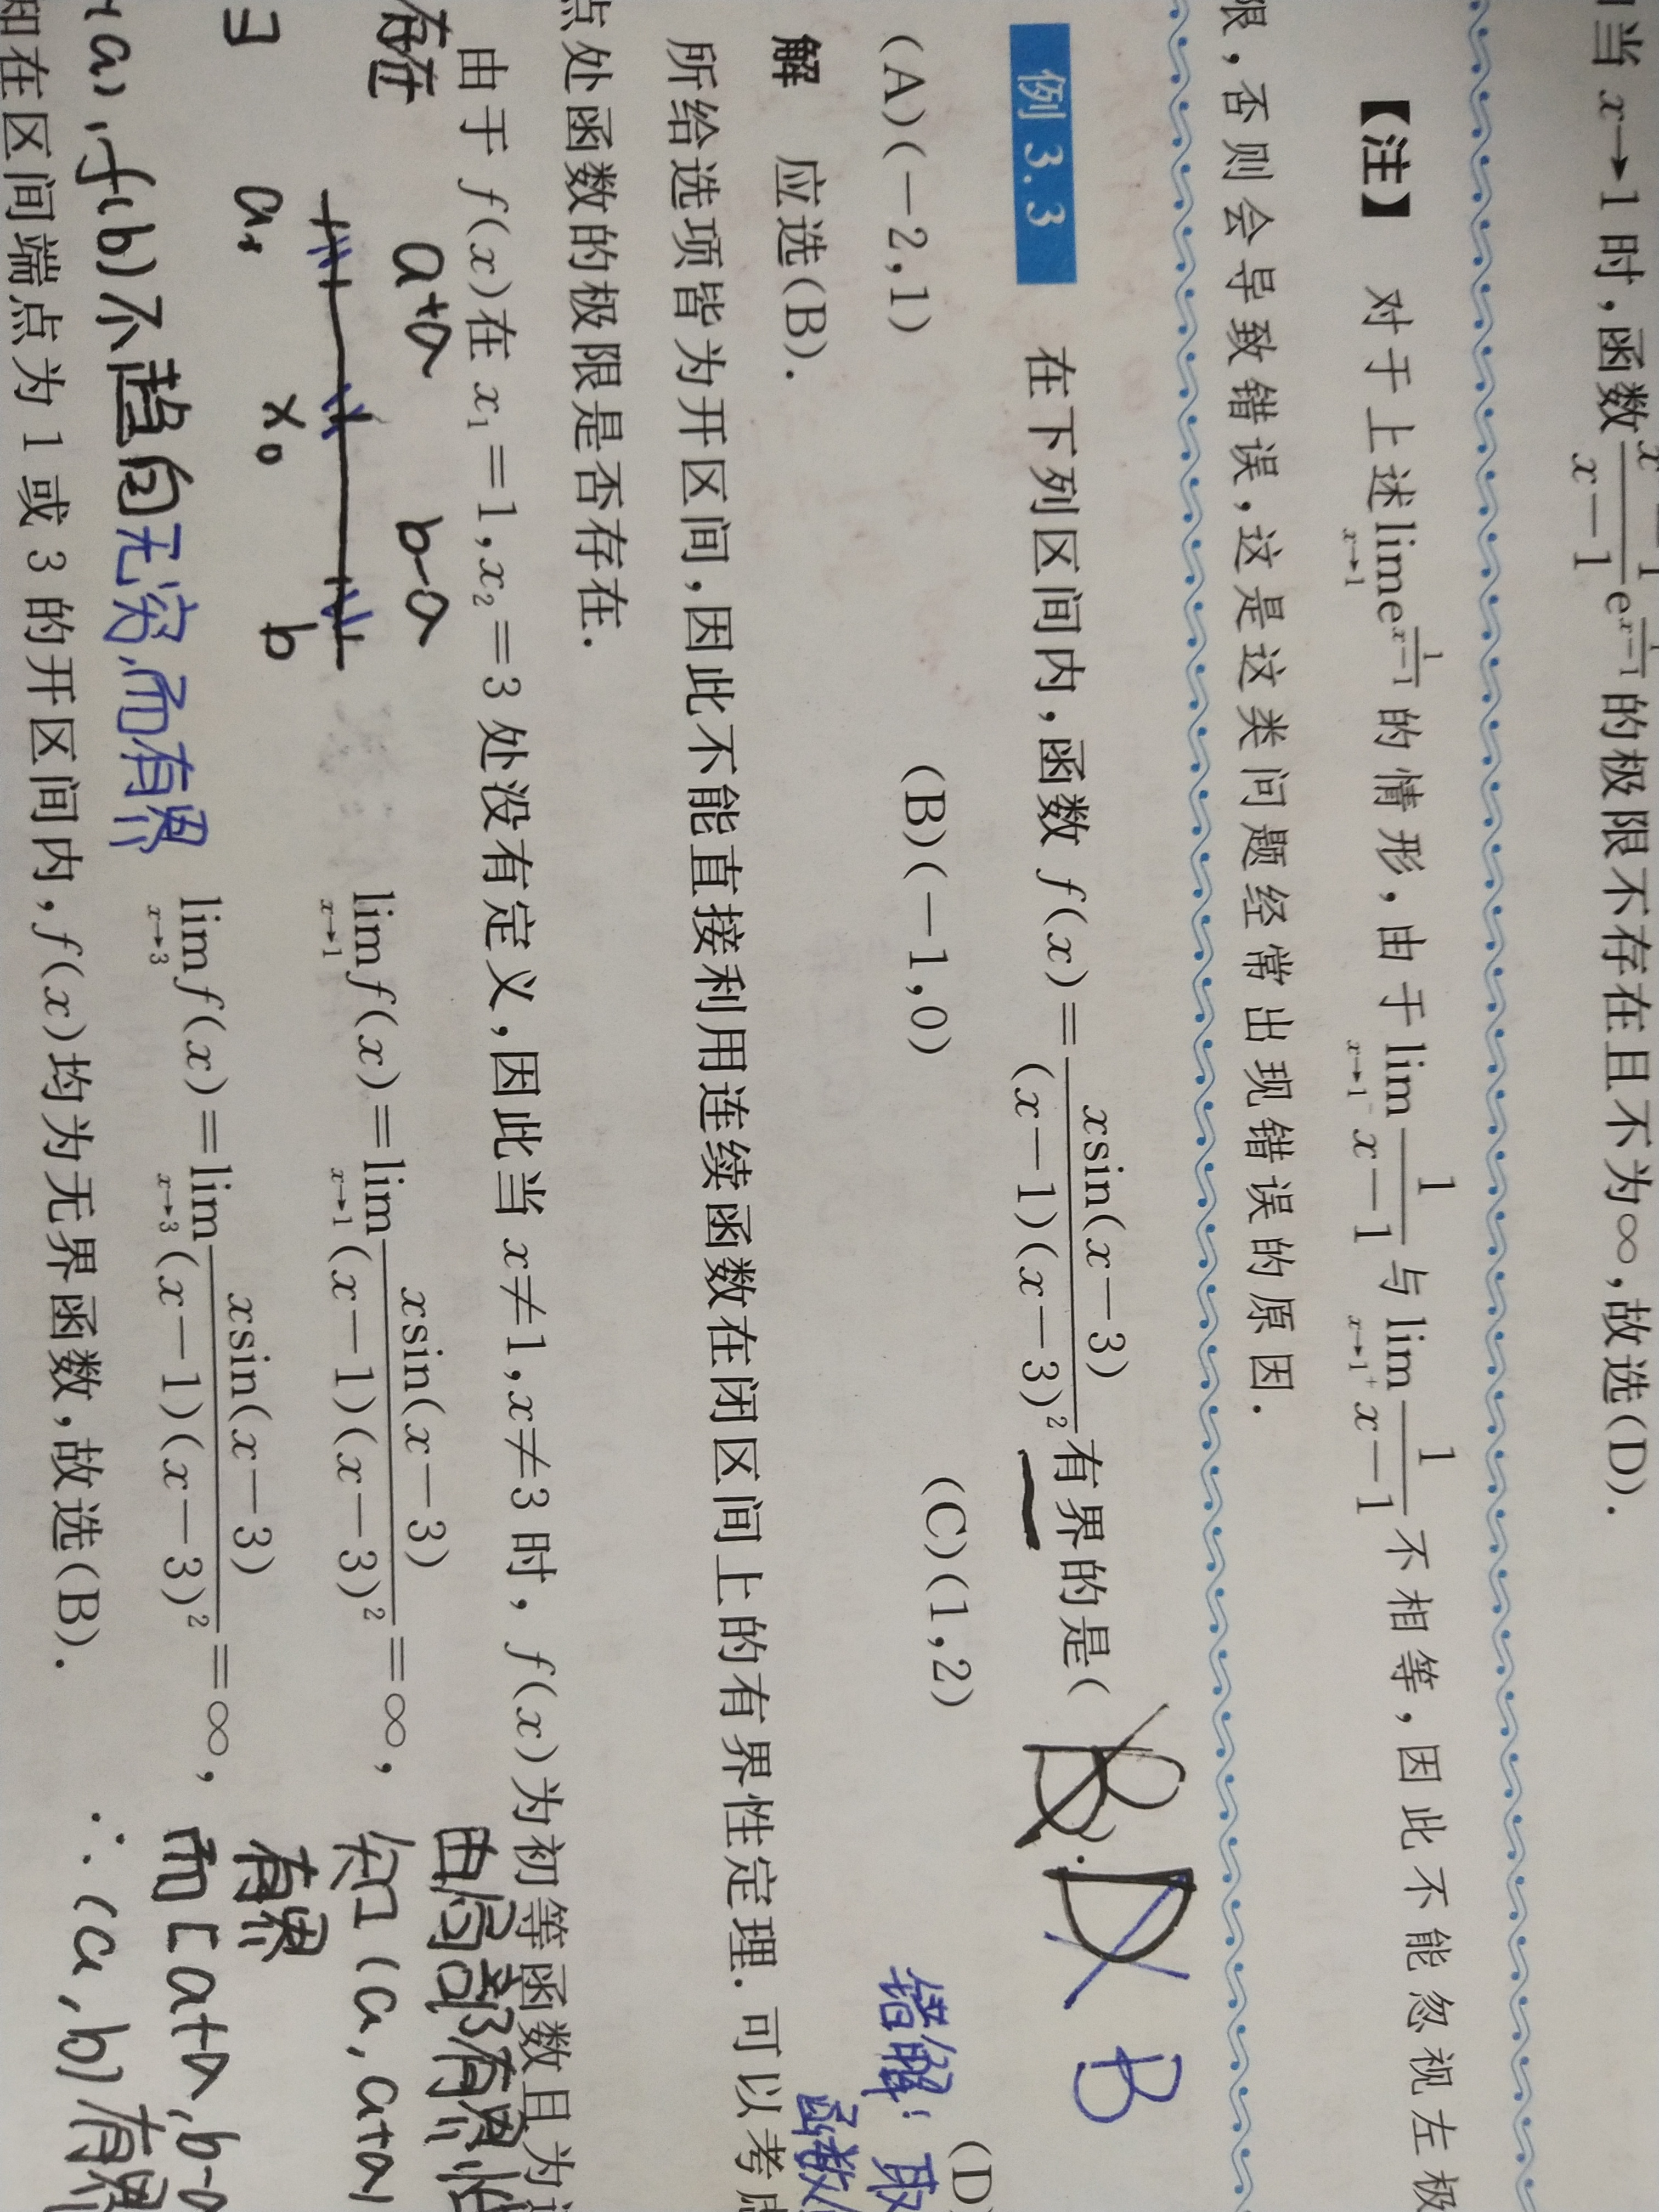 当 x→1 时,函数 x-1 e^{1/(x-1)} 的极限不存在且不为∞,故选(D).
【注】 对于上述 lim_{x→1} e^{1/(x-1)} 的情形,由于 lim_{x→1^-} 1/(x-1) 与 lim_{x→1^+} 1/(x-1) 不相等,因此不能忽视左极
限,否则会导致错误,这是这类问题经常出现错误的原因.
例 3.3 在下列区间内,函数 f(x)= xsin(x-3)/((x-1)(x-3)^2) 有界的是( B ). D B
(A)(-2,1) (B)(-1,0) (C)(1,2) (D)
错解:取
函数
解 应选(B).
所给选项皆为开区间,因此不能直接利用连续函数在闭区间上的有界性定理.可以考虑
点处函数的极限是否存在.
由于 f(x)在 x₁=1,x₂=3 处没有定义,因此当 x≠1,x≠3 时, f(x)为初等函数且为
lim_{x→1} f(x)=lim_{x→1} xsin(x-3)/((x-1)(x-3)^2)=∞,
lim_{x→3} f(x)=lim_{x→3} xsin(x-3)/((x-1)(x-3)^2)=∞,
a x₀ b
f(b)不趋向无穷,而有界
由局部有界性
知 (a, a+Δ)
有界
而[a+Δ,b-Δ
∴ (a,b)有界
知在区间端点为 1 或 3 的开区间内,f(x)均为无界函数,故选(B).